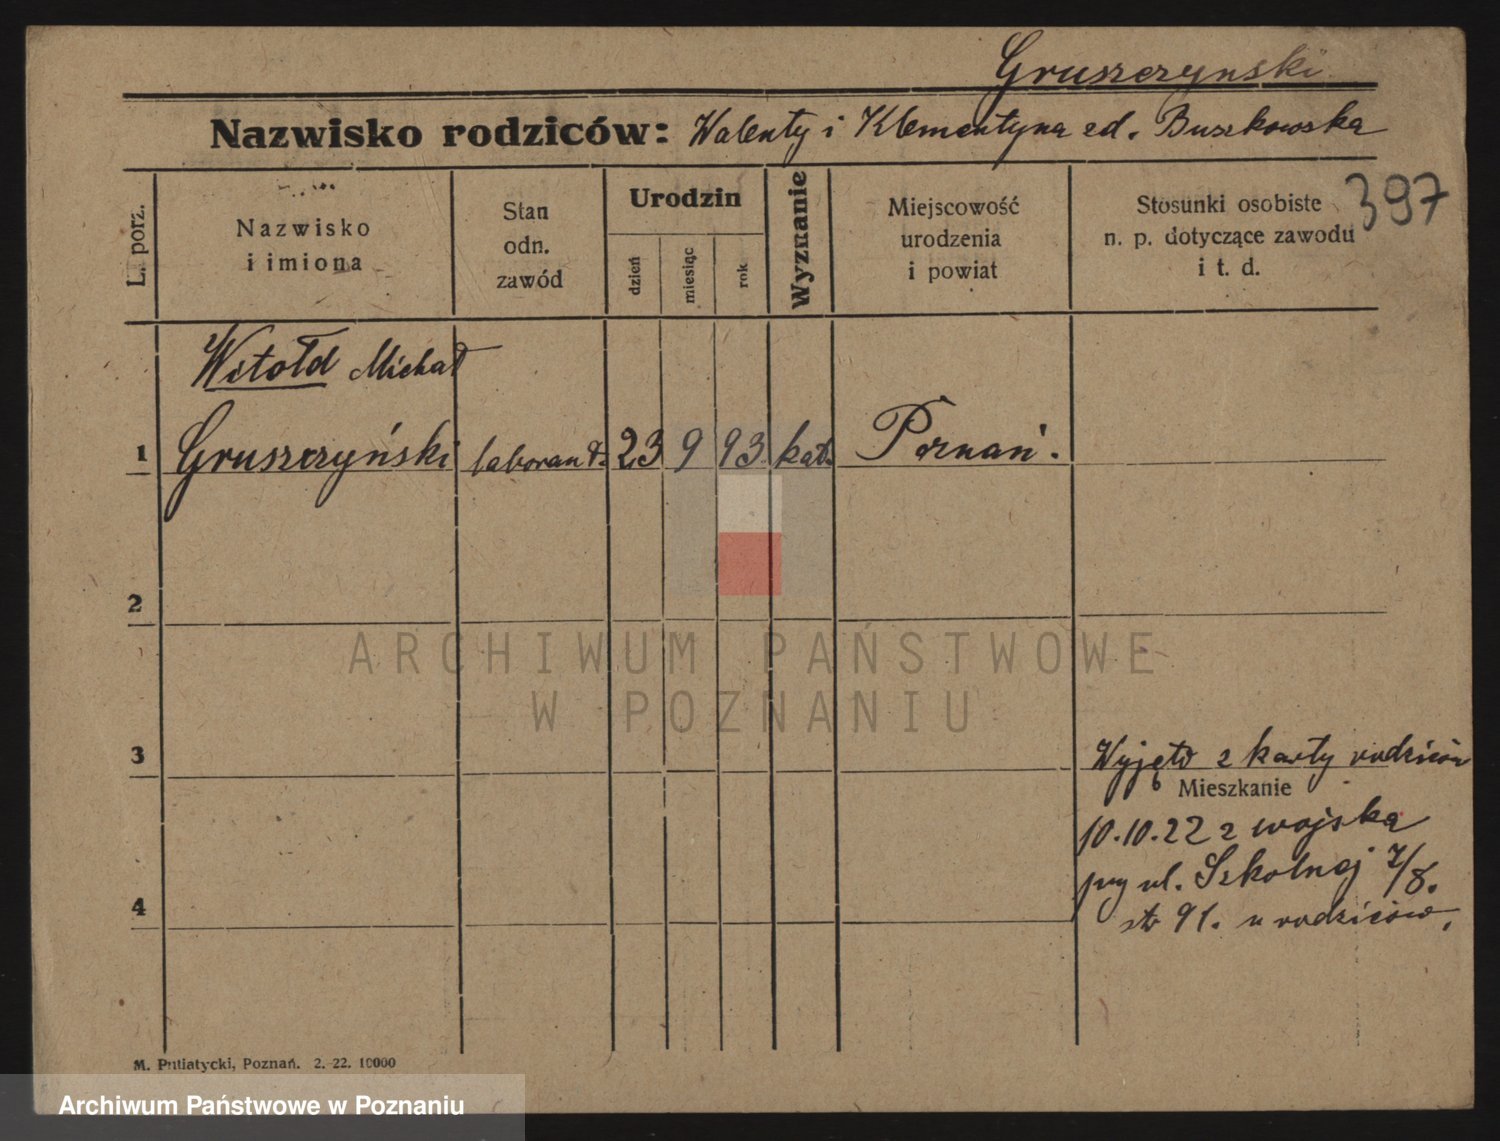 Gruszczynski
Nazwisko rodziców: Walenty i Klementyna zd. Buszkowska
397
L. porz.
Nazwisko
i imiona
Stan
odn.
zawód
Urodzin
dzień
miesiąc
rok
Wyznanie
Miejscowość
urodzenia
i powiat
Stosunki osobiste
n. p. dotyczące zawodu
i t. d.
Witołd Michał
1 Gruszczyński laborant. 23 9 93 kat. Poznań.
2
ARCHIWUM PAŃSTWOWE
W POZNANIU
3
Wyjęto z karty rodziców
Mieszkanie
10.10.22 z wojska
przy ul. Szkolnej 7/8.
4
str 91. u rodziców.
M. Putiatycki, Poznań. 2. 22. 10000
Archiwum Państwowe w Poznaniu